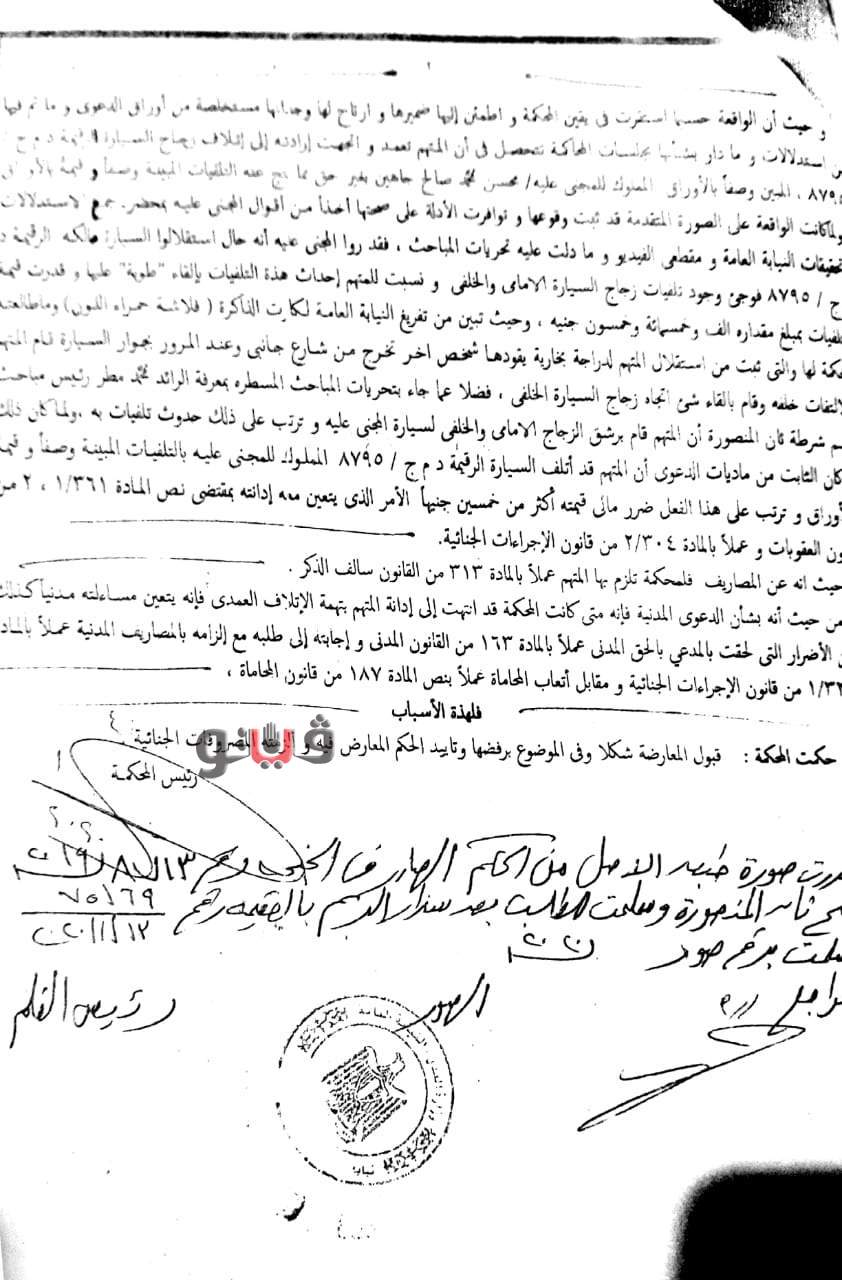 و حيث أن الواقعة حسبما استقرت فى يقين المحكمة و اطمئن إليها ضميرها و ارتاح لها وجدانها مستخلصة من أوراق الدعوى و ما تم فيها
من استدلالات و ما دار بشأنها بجلسات المحاكمة تتحصل فى أن المتهم تعمد و اتجهت إرادته إلى إتلاف زجاج السيارة الرقيمة د م ج /
٨٧٩٥ ، المبين وصفاً بالأوراق المملوك للمجنى عليه / محسن محمد صالح جاهين بغير حق مما نتج عنه التلفيات المبينة وصفاً و قيمة بالأوراق
ولما كانت الواقعة على الصورة المتقدمة قد ثبت وقوعها و توافرت الأدلة على صحتها أخذاً من أقوال المجنى عليه بمحضر جمع الاستدلالات
تحقيقات النيابة العامة و مقطعى الفيديو و ما دلت عليه تحريات المباحث ، فقد روا المجنى عليه أنه حال استقلالوا السيارة مالكه الرقيمة د
ج / ٨٧٩٥ فوجئ وجود تلفيات زجاج السيارة الامامى والخلفى و نسبت للمتهم إحداث هذة التلفيات بإلقاء "طوبة" عليها و قدرت قيمة
تلفيات بمبلغ مقداره الف وخمسمائة وخمسون جنيه ، وحيث تبين من تفريغ النيابة العامة لكارت الذاكرة ( فلاشة حمراء اللون) وماطالعته
كمة لها والتى ثبت من استقلال المتهم لدراجة بخارية يقودها شخص اخر تخرج من شارع جانبى وعند المرور بجوار السيارة قام المتهم
الالتفات خلفه وقام بالقاء شئ اتجاه زجاج السيارة الخلفى ، فضلا عما جاء بتحريات المباحث المسطره بمعرفة الرائد محمد مطر رئيس مباحث
سم شرطة ثان المنصورة أن المتهم قام برشق الزجاج الامامى والخلفى لسيارة المجنى عليه و ترتب على ذلك حدوث تلفيات به ،ولما كان ذلك
كان الثابت من ماديات الدعوى أن المتهم قد أتلف السيارة الرقيمة د م ج / ٨٧٩٥ المملوك للمجنى عليه بالتلفيات المبينة وصفاً و قيمة
أوراق و ترتب على هذا الفعل ضرر مالى قيمته أكثر من خمسين جنيهاً الأمر الذى يتعين معه إدانته بمقتضى نص المادة ١/٣٦١ ، ٢ من
ون العقوبات و عملاً بالمادة ٢/٣٠٤ من قانون الإجراءات الجنائية.
حيث انه عن المصاريف فلمحكمة تلزم بها المتهم عملاً بالمادة ٣١٣ من القانون سالف الذكر .
من حيث أنه بشأن الدعوى المدنية فإنه متى كانت المحكمة قد انتهت إلى إدانة المتهم بتهمة الإتلاف العمدى فإنه يتعين مساءلته مدنياً كذلك
ن الأضرار التى لحقت بالمدعي بالحق المدنى عملاً بالمادة ١٦٣ من القانون المدنى و إجابته إلى طلبه مع إلزامه بالمصاريف المدنية عملاً بالماد
١/٣٢ من قانون الإجراءات الجنائية و مقابل أتعاب المحاماة عملاً بنص المادة ١٨٧ من قانون المحاماة ،
فلهذة الأسباب
حكمت المحكمة : قبول المعارضة شكلا وفى الموضوع برفضها وتاييد الحكم المعارض فيه و الزمته المصروفات الجنائية .
ڤيتو
رئيس المحكمة
صورة طبق الاصل من الحكم الصادر فى
المنصورة وسلمت للطالب بعد سداد الرسم بالقسيمه رقم ٧٥١٦٩
رئيس القلم